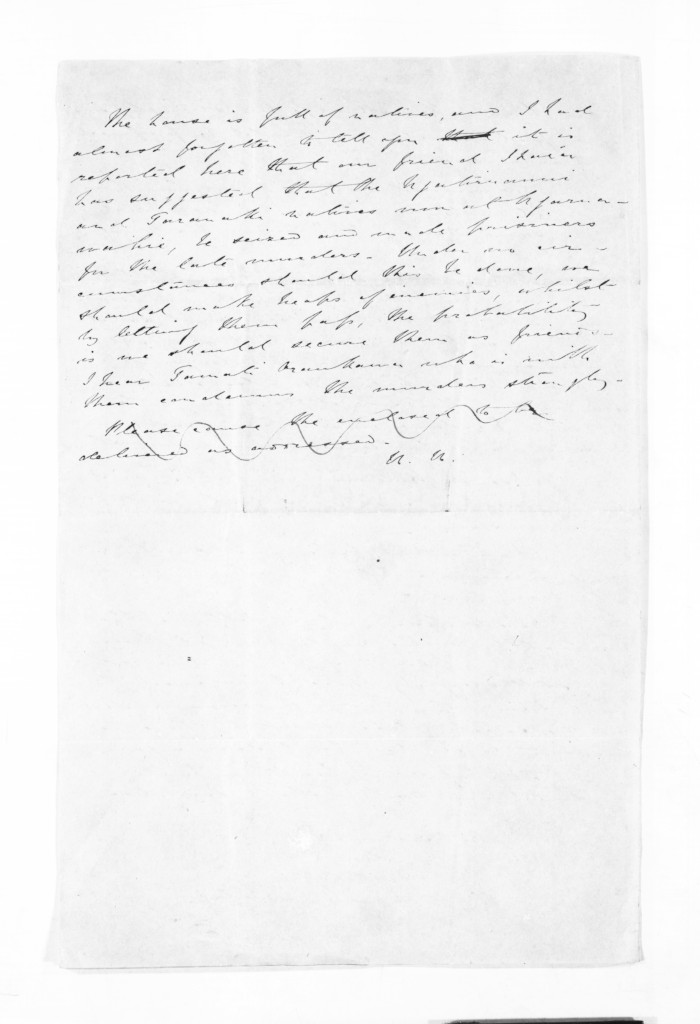 The house is full of natives, and I had
almost forgotten to tell you that it is
reported here that our friend
has suggested that the Ngatiruanui
and Taranaki natives now at Ngarua-
wahie, be seized and made prisoners
for the late murders. Under no cir-
cumstances should this be done, we
should make heaps of enemies, whilst
by letting them pass, the probability
is we should secure them as friends.
I hear Tamati who is with
them condemns the murders strongly.
Please cause the enclosed to be
delivered as addressed.